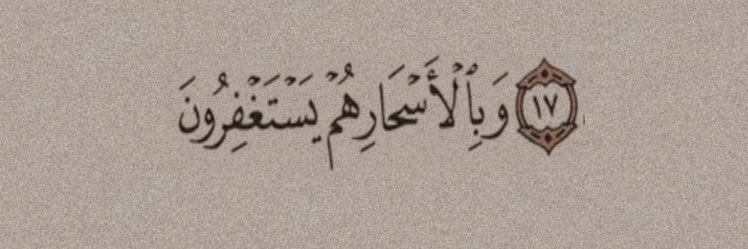 ١٧ وَبِٱلْأَسْحَارِ هُمْ يَسْتَغْفِرُونَ